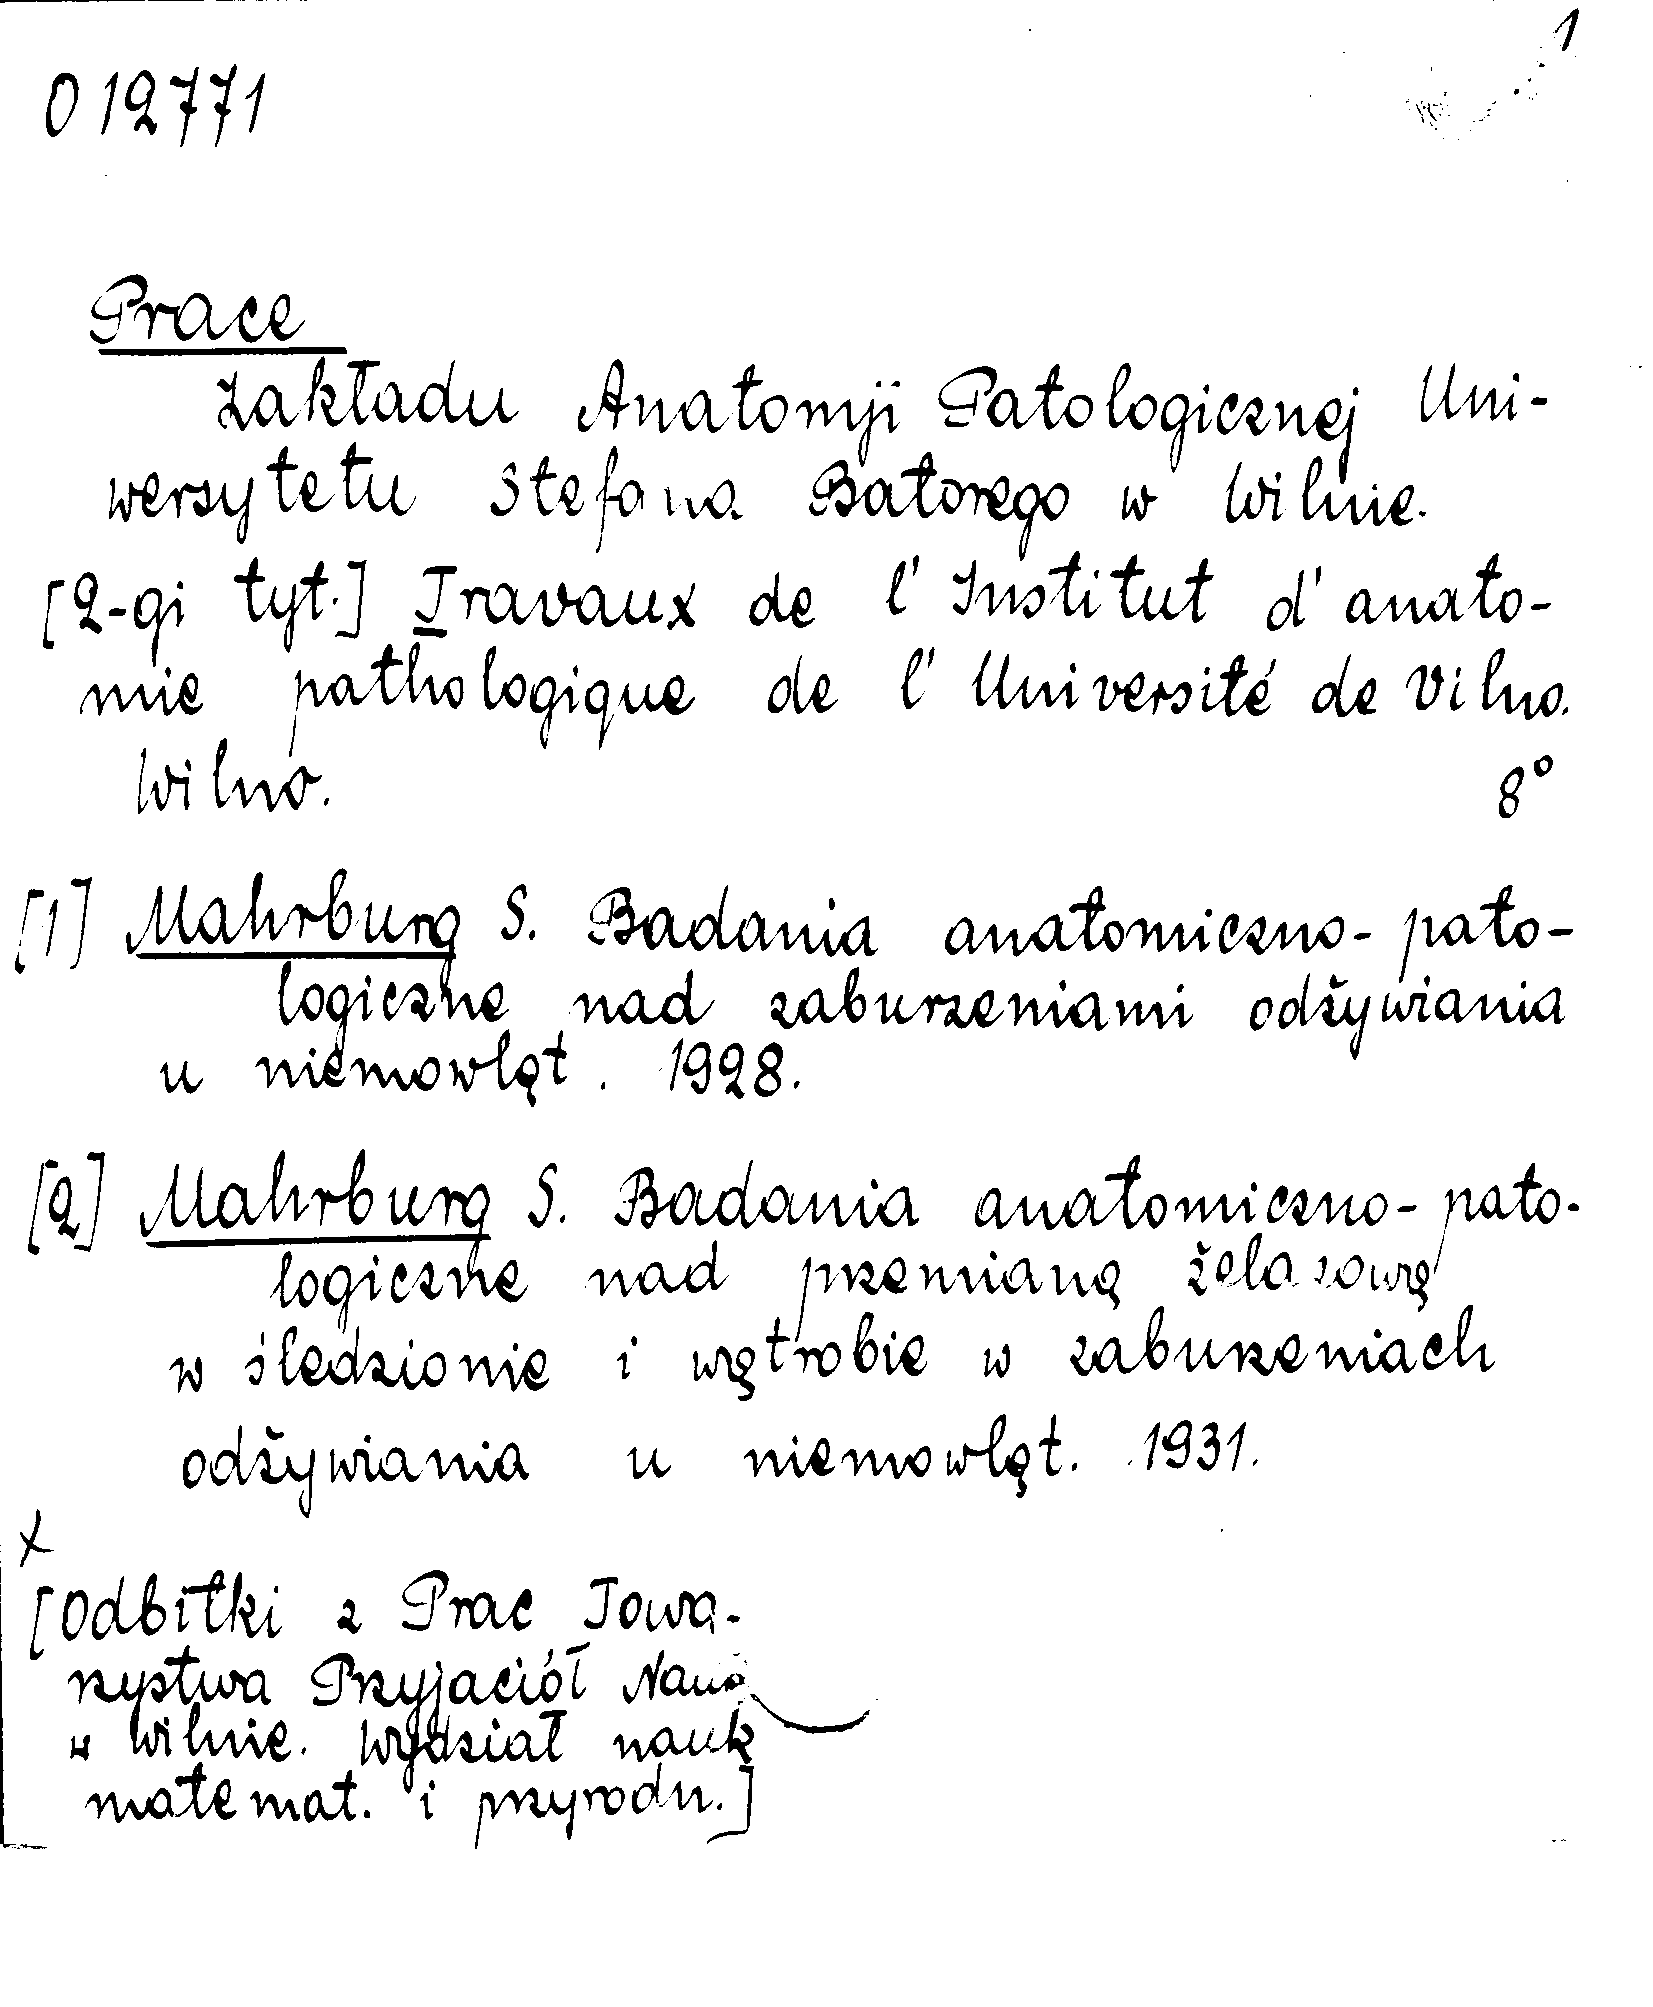 1
012771
Prace
Zakładu Anatomji Patologicznej Uni-
wersytetu Stefana Batorego w Wilnie.
[2-gi tyt.] Travaux de l'Institut d'anato-
mie pathologique de l'Université de Vilno.
Wilno. 8°
[1] Mahrburg S. Badania anatomiczno-pato-
logiczne nad zaburzeniami odżywiania
u niemowląt. 1928.
[2] Mahrburg S. Badania anatomiczno-pato-
logiczne nad przemianą żelazową
w śledzionie i wątrobie w zaburzeniach
odżywiania u niemowląt. 1931.
x
[Odbitki z Prac Towa-
rzystwa Przyjaciół Nauk
w Wilnie. Wydział nauk
matemat. i przyrodn.]